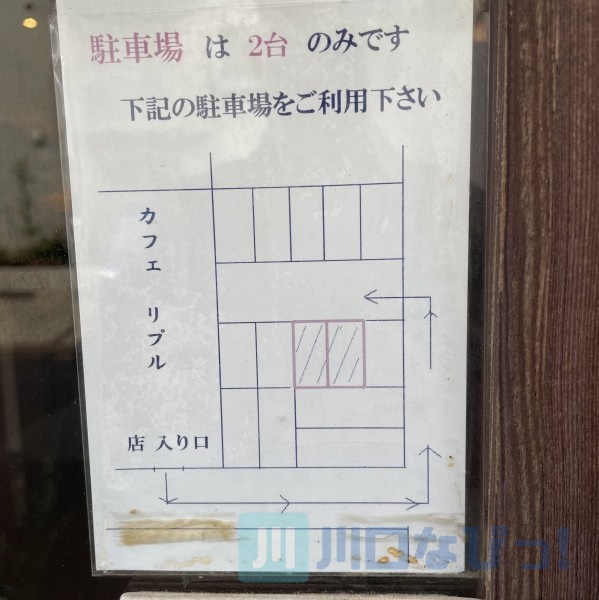 駐車場 は 2台 のみです
下記の駐車場をご利用下さい
カフェ リプル
店 入り口
川 川口なびっ!